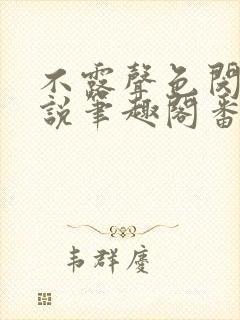 不露聲色閱
說筆趣閣番
韦群慶